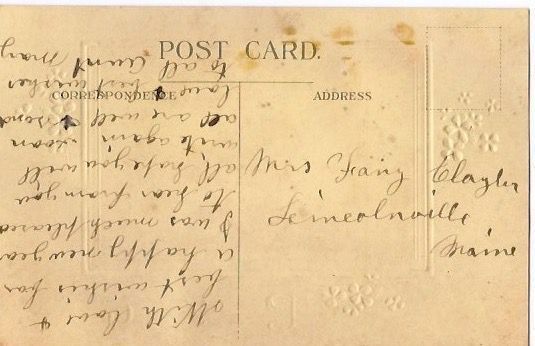 POST CARD.
CORRESPONDENCE
ADDRESS
Mrs Fanny Clayter
Lincolnville
Maine
With love &
best wishes for
a happy new year
I was much pleased
to hear from you
all, hope you will
write again soon
all are well send
love & best wishes
to all Aunt Mary